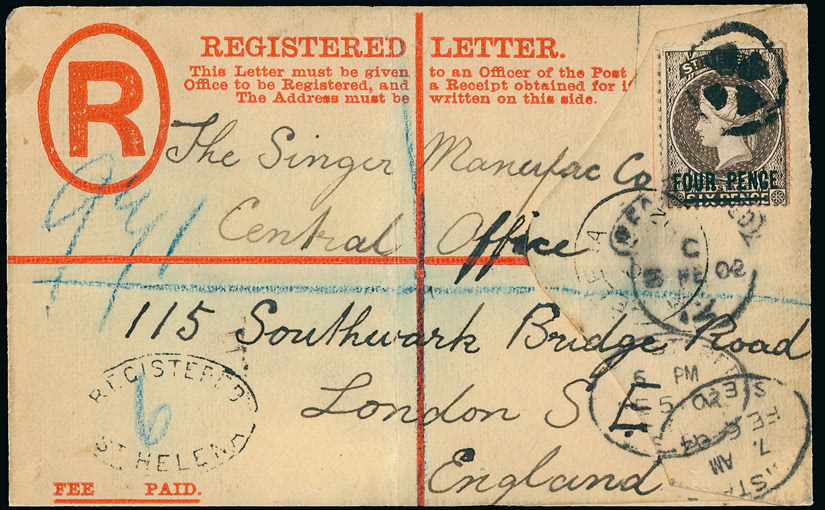 REGISTERED LETTER.
This Letter must be given to an Officer of the Post
Office to be Registered, and a Receipt obtained for
The Address must be written on this side.
R
FOUR PENCE
SIX PENCE
The Singer Manufac Co
Central Office
115 Southwark Bridge Road
London S E.
England
C
FE 02
REGISTERED
ST HELENA
6
6 PM
5
02
7. AM
FE 6
FEE PAID.